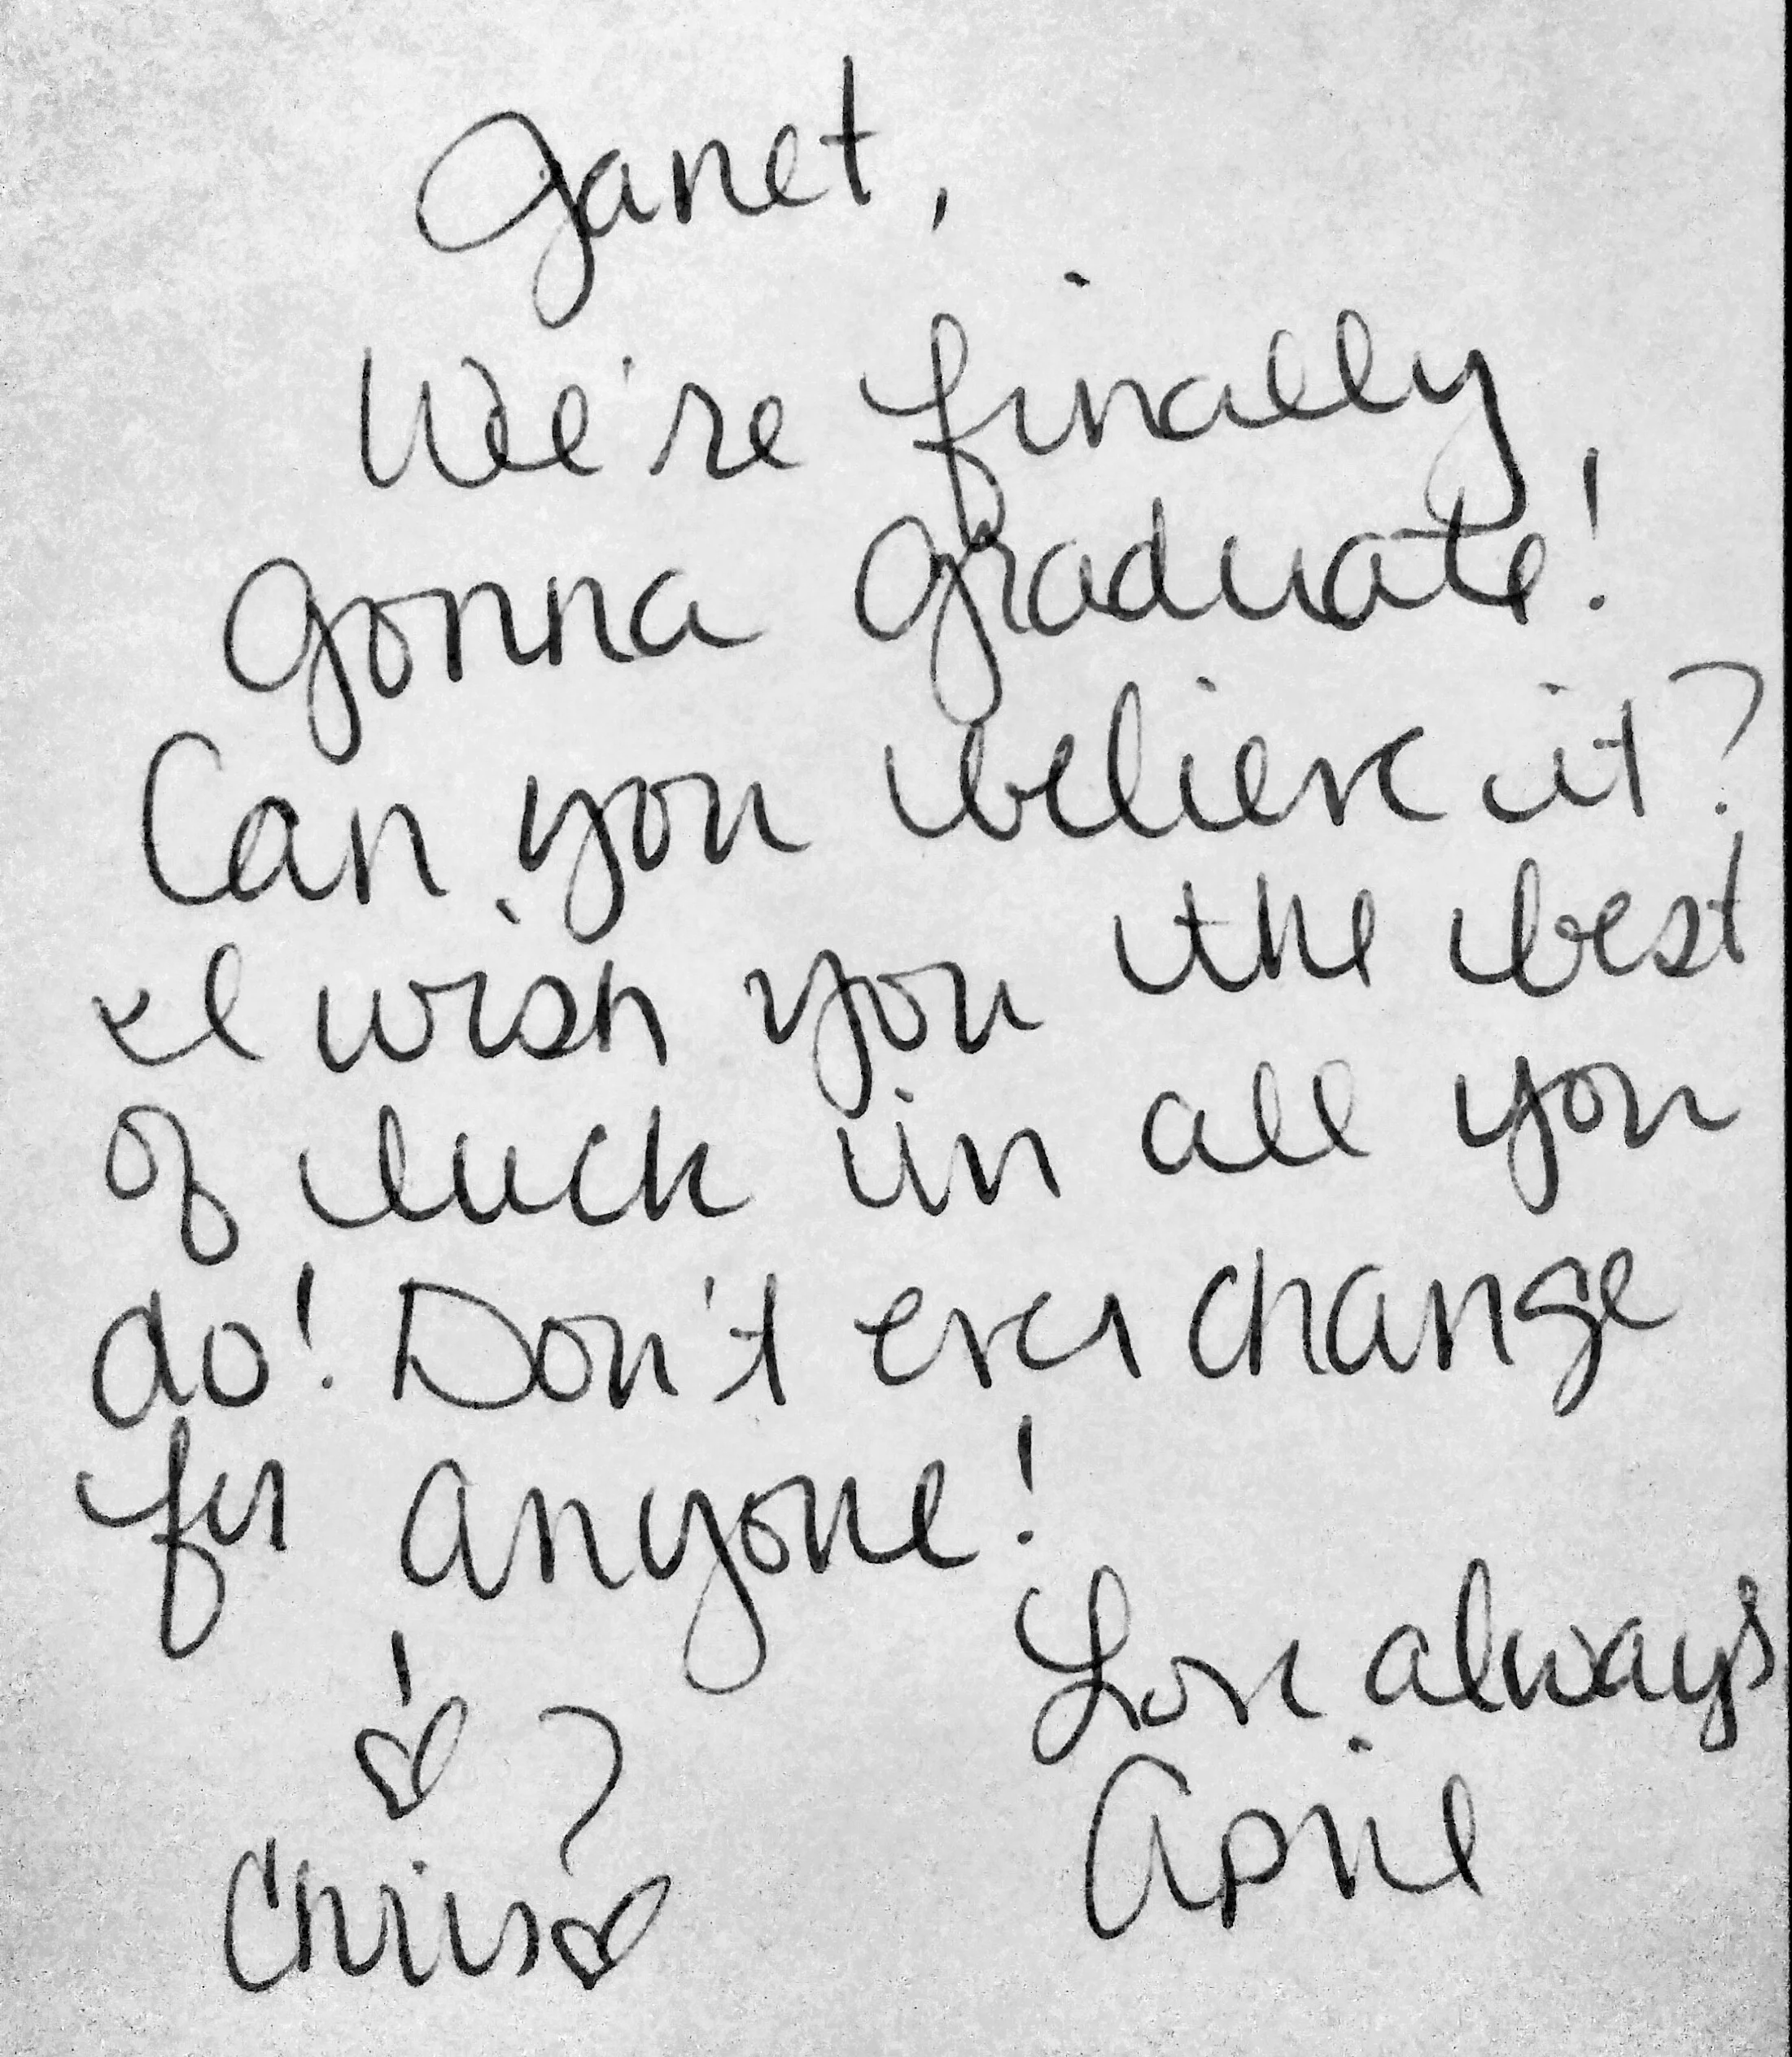 Janet,
We're finally
gonna graduate!
Can you believe it?
I wish you the best
of luck in all you
do! Don't ever change
for anyone!
Love always
April
! ?
Chris